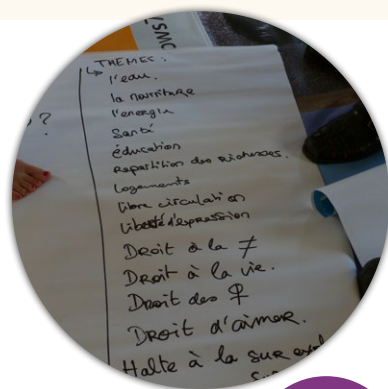 /SMC
THEMES :
↳ l'eau.
la nourriture
l'energie
Santé
éducation
Repartition des richesses.
Logements
libre circulation
liberté d'expression
Droit à la ≠
Droit à la vie.
Droit des ♀
Droit d'aimer.
Halte à la sur
?